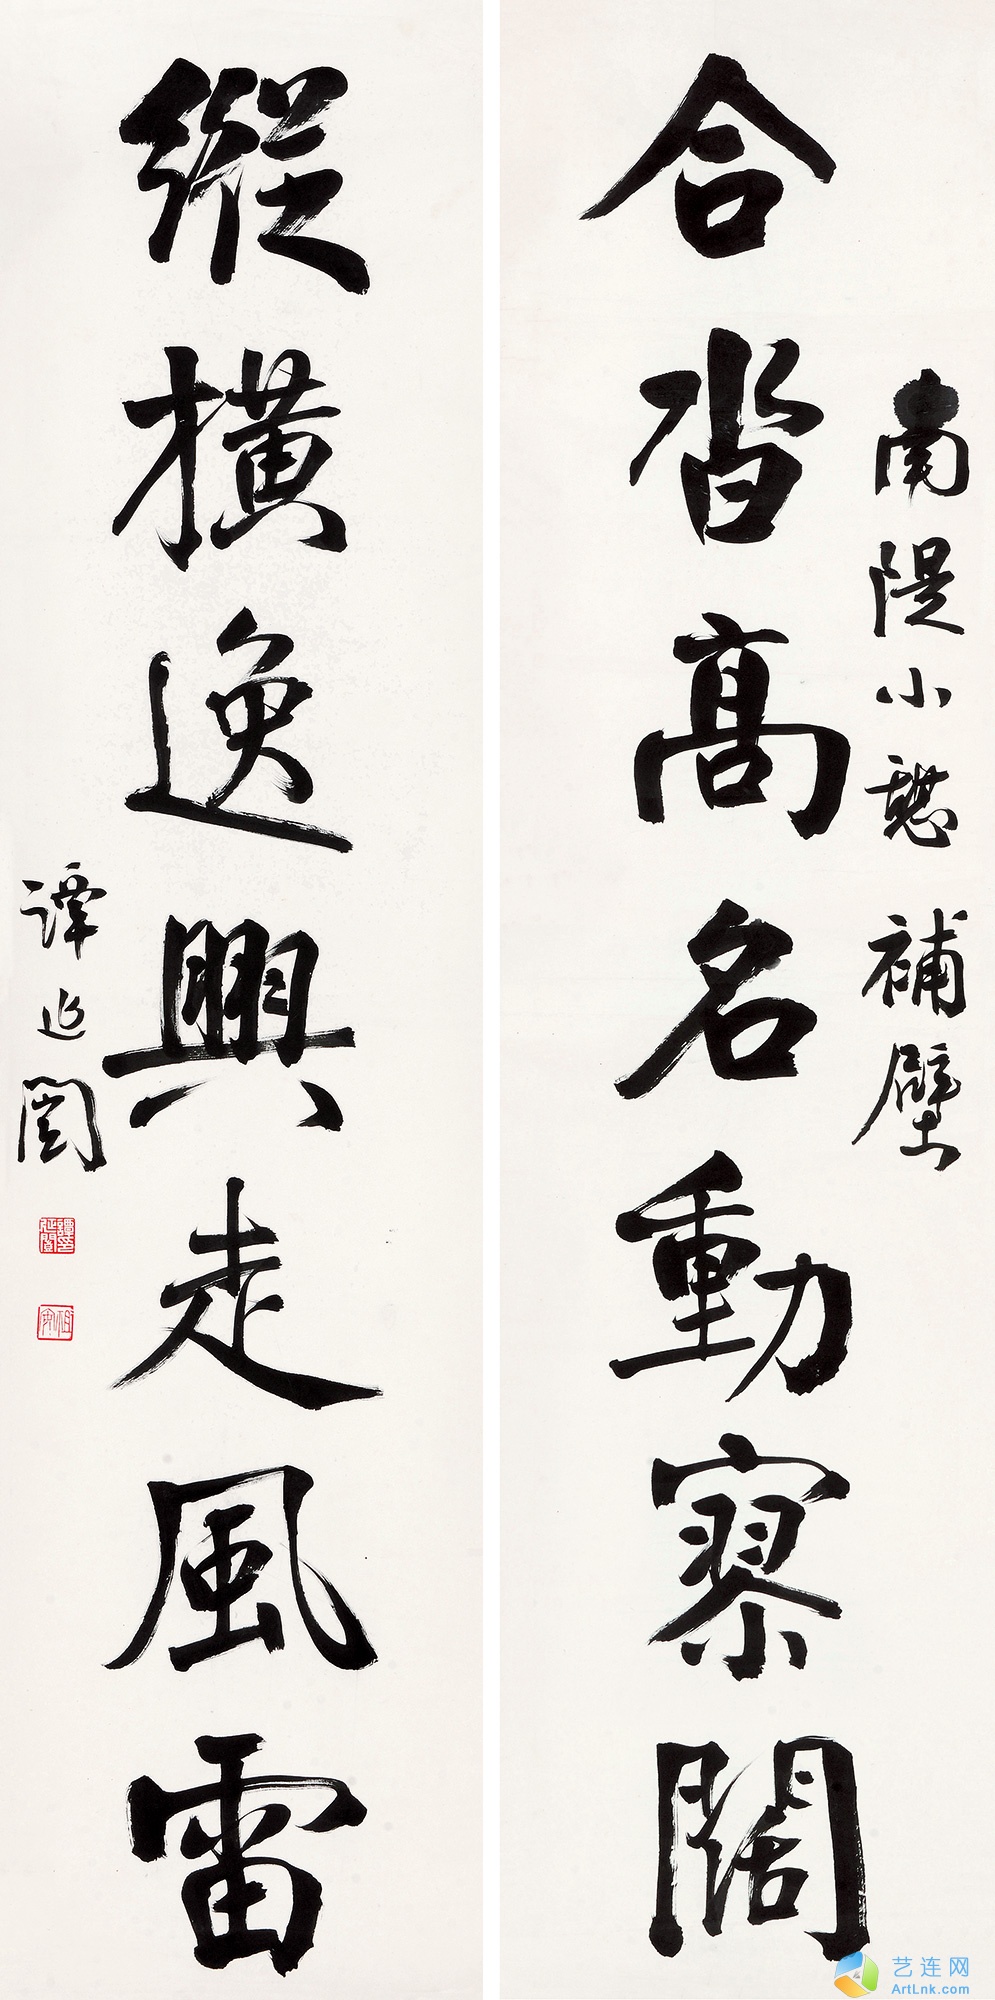 南隄小憩補壁
合沓高名動寥闊
縱橫逸興走風雷
譚延闓
譚延闓印
祖安
艺连网
ArtLnk.com